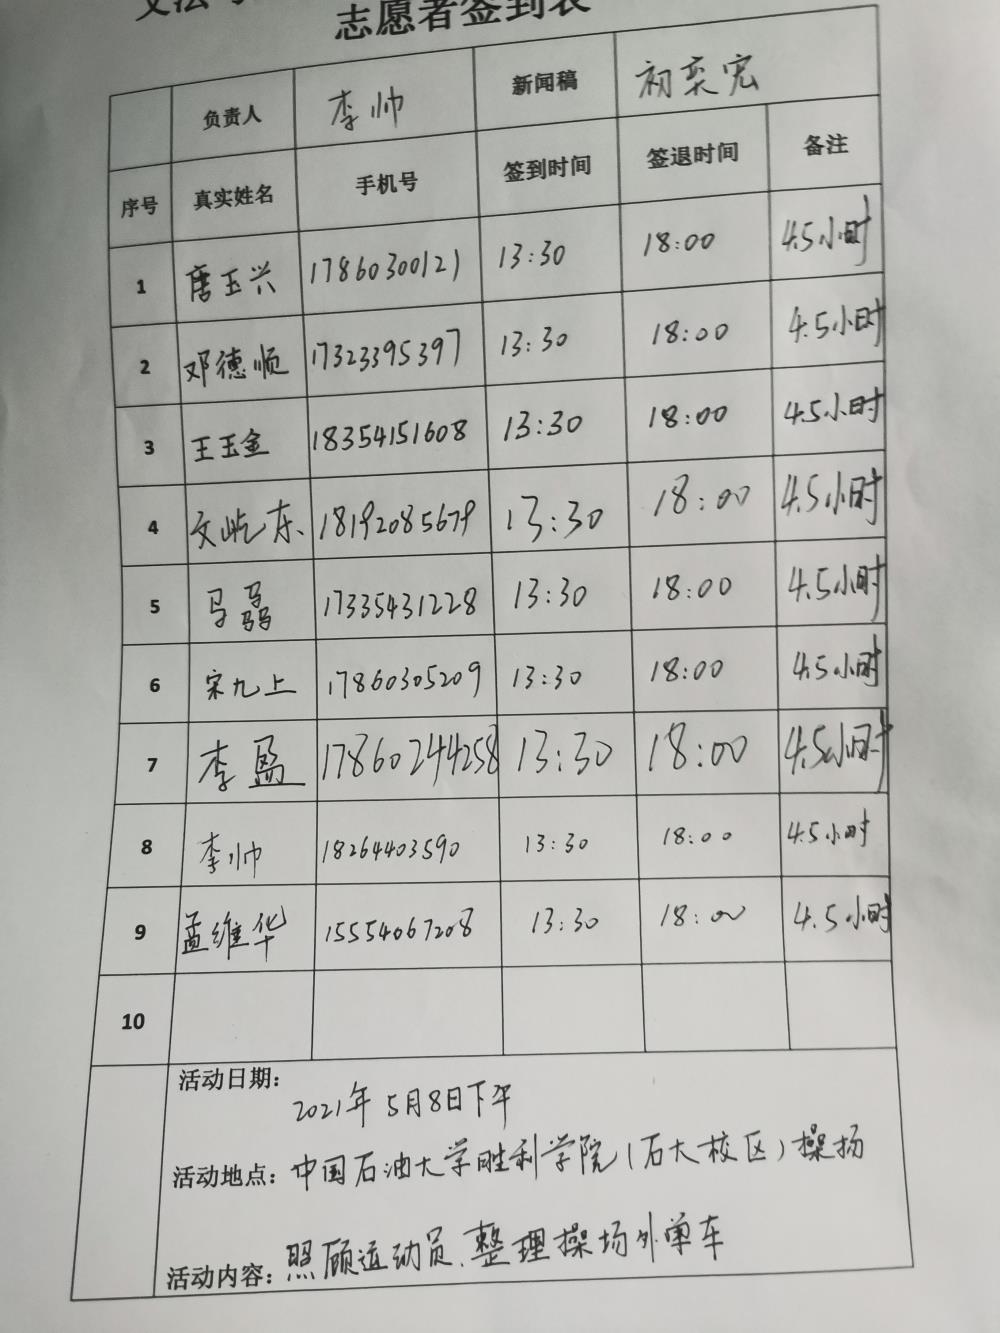 志愿者签到表
负责人 李帅 新闻稿 初奕宏
序号 真实姓名 手机号 签到时间 签退时间 备注
1 唐玉兴 17860300121 13:30 18:00 4.5小时
2 邓德顺 17323395397 13:30 18:00 4.5小时
3 王玉金 18354151608 13:30 18:00 4.5小时
4 文屹东 18192085679 13:30 18:00 4.5小时
5 马骉 17335431228 13:30 18:00 4.5小时
6 宋九上 17860305209 13:30 18:00 4.5小时
7 李盈 17860244258 13:30 18:00 4.5小时
8 李帅 18264403590 13:30 18:00 4.5小时
9 孟维华 15554067208 13:30 18:00 4.5小时
10
活动日期:
2021年5月8日下午
活动地点: 中国石油大学胜利学院(石大校区)操场
活动内容: 照顾运动员、整理操场外单车